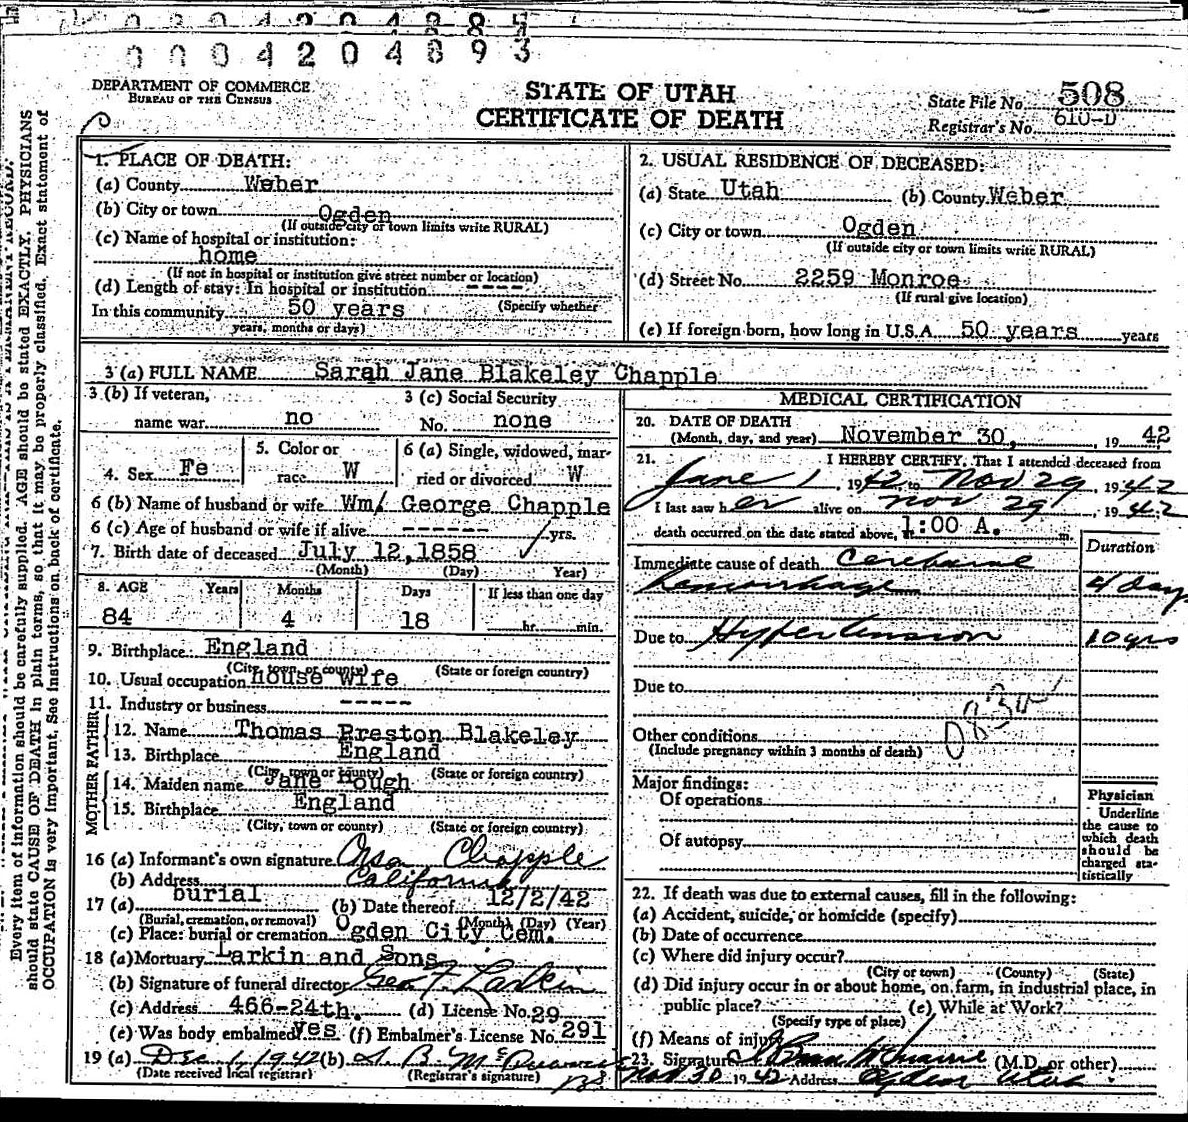 0 0 0 4 2 0 4 8 9 3
DEPARTMENT OF COMMERCE
BUREAU OF THE CENSUS
STATE OF UTAH
CERTIFICATE OF DEATH
State File No. 508
Registrar's No. 610-D
Every item of information should be carefully supplied. AGE should be stated EXACTLY. PHYSICIANS
should state CAUSE OF DEATH in plain terms, so that it may be properly classified. Exact statement of
OCCUPATION is very important. See instructions on back of certificate.
1. PLACE OF DEATH:
(a) County Weber
(b) City or town Ogden
(If outside city or town limits write RURAL)
(c) Name of hospital or institution:
home
(If not in hospital or institution give street number or location)
(d) Length of stay: In hospital or institution ----
(Specify whether
In this community 50 years
years, months or days)
2. USUAL RESIDENCE OF DECEASED:
(a) State Utah (b) County Weber
(c) City or town Ogden
(If outside city or town limits write RURAL)
(d) Street No. 2259 Monroe
(If rural give location)
(e) If foreign born, how long in U.S.A. 50 years years
3 (a) FULL NAME Sarah Jane Blakeley Chapple
3 (b) If veteran,
name war no
3 (c) Social Security
No. none
4. Sex Fe
5. Color or
race W
6 (a) Single, widowed, mar-
ried or divorced W
6 (b) Name of husband or wife Wm. George Chapple
6 (c) Age of husband or wife if alive ------ yrs.
7. Birth date of deceased July 12, 1858
(Month) (Day) Year)
8. AGE Years Months Days If less than one day
84 4 18 hr. min.
9. Birthplace: England
(City, town, or county) (State or foreign country)
10. Usual occupation house wife
11. Industry or business -----
FATHER
12. Name Thomas Preston Blakeley
13. Birthplace England
(City, town or county) (State or foreign country)
MOTHER
14. Maiden name Jane Hough
15. Birthplace England
(City, town or county) (State or foreign country)
16 (a) Informant's own signature Chapple
(b) Address California
17 (a) burial (b) Date thereof 12/2/42
(Burial, cremation, or removal) (Month) (Day) (Year)
(c) Place: burial or cremation Ogden City Cem.
18 (a) Mortuary Larkin and Sons
(b) Signature of funeral director Geo. F. Larkin
(c) Address 466-24th. (d) License No. 29
(e) Was body embalmed yes (f) Embalmer's License No. 291
19 (a) Dec 1, 1942 (b)
(Date received local registrar) (Registrar's signature)
MEDICAL CERTIFICATION
20. DATE OF DEATH
(Month, day, and year) November 30, 19 42
21. I HEREBY CERTIFY, That I attended deceased from
June 1, 1942, to Nov 29, 1942
I last saw her alive on Nov 29, 1942
death occurred on the date stated above, at 1:00 A. m.
Duration
Immediate cause of death Cerebral
hemorrhage 4 days
Due to Hypertension 10 yrs
Due to
Other conditions
(Include pregnancy within 3 months of death)
Major findings:
Of operations
Of autopsy
Physician
Underline
the cause to
which death
should be
charged sta-
tistically
22. If death was due to external causes, fill in the following:
(a) Accident, suicide, or homicide (specify)
(b) Date of occurrence
(c) Where did injury occur?
(City or town) (County) (State)
(d) Did injury occur in or about home, on farm, in industrial place, in
public place? (e) While at Work?
(Specify type of place)
(f) Means of injury
23. Signature (M.D. or other)
Nov 30 1942 Address Ogden Utah